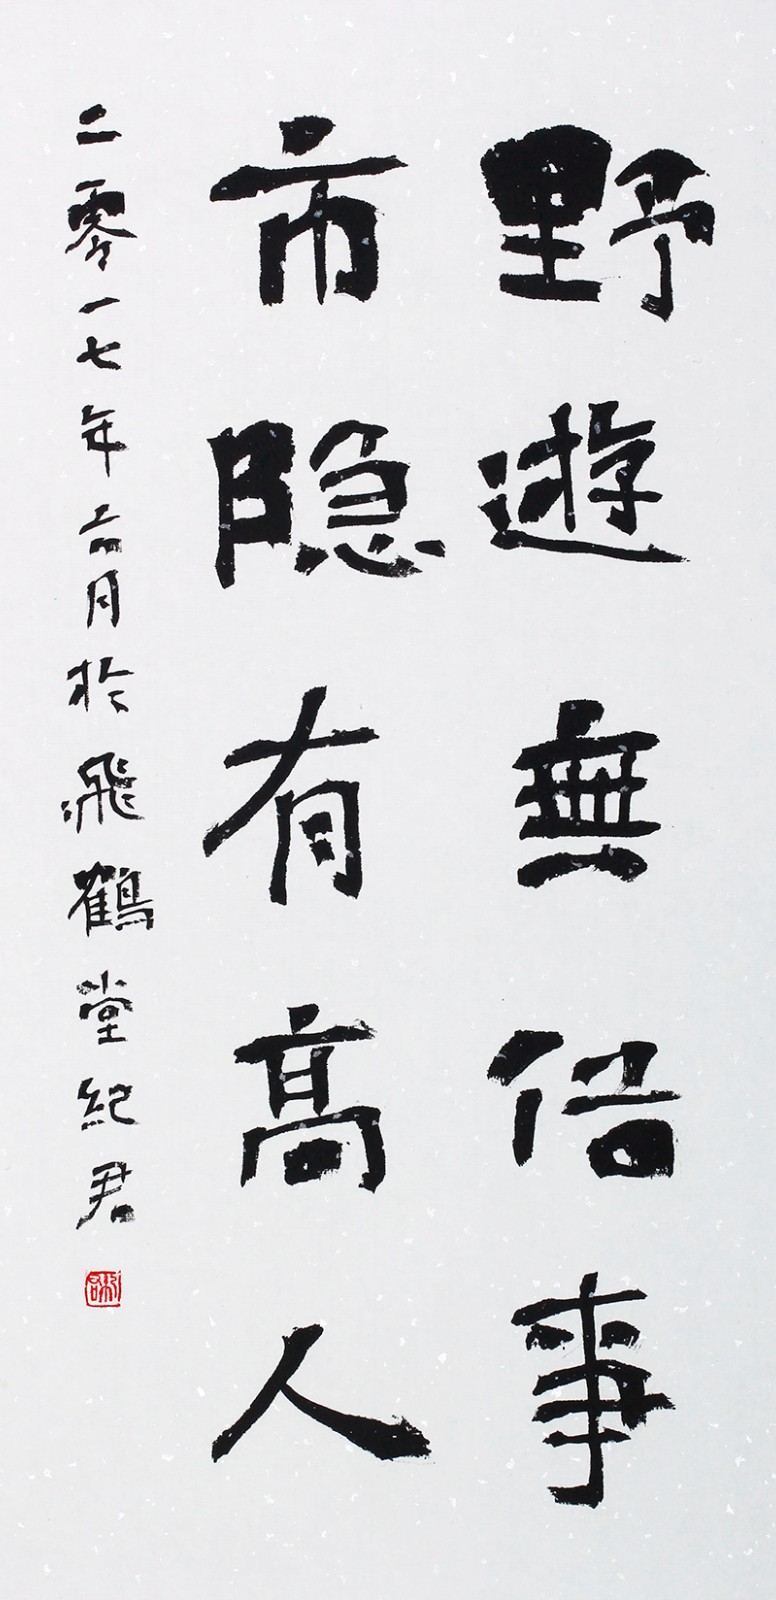 野遊無俗事
市隐有高人
二零一七年六月於飛鶴堂紀君